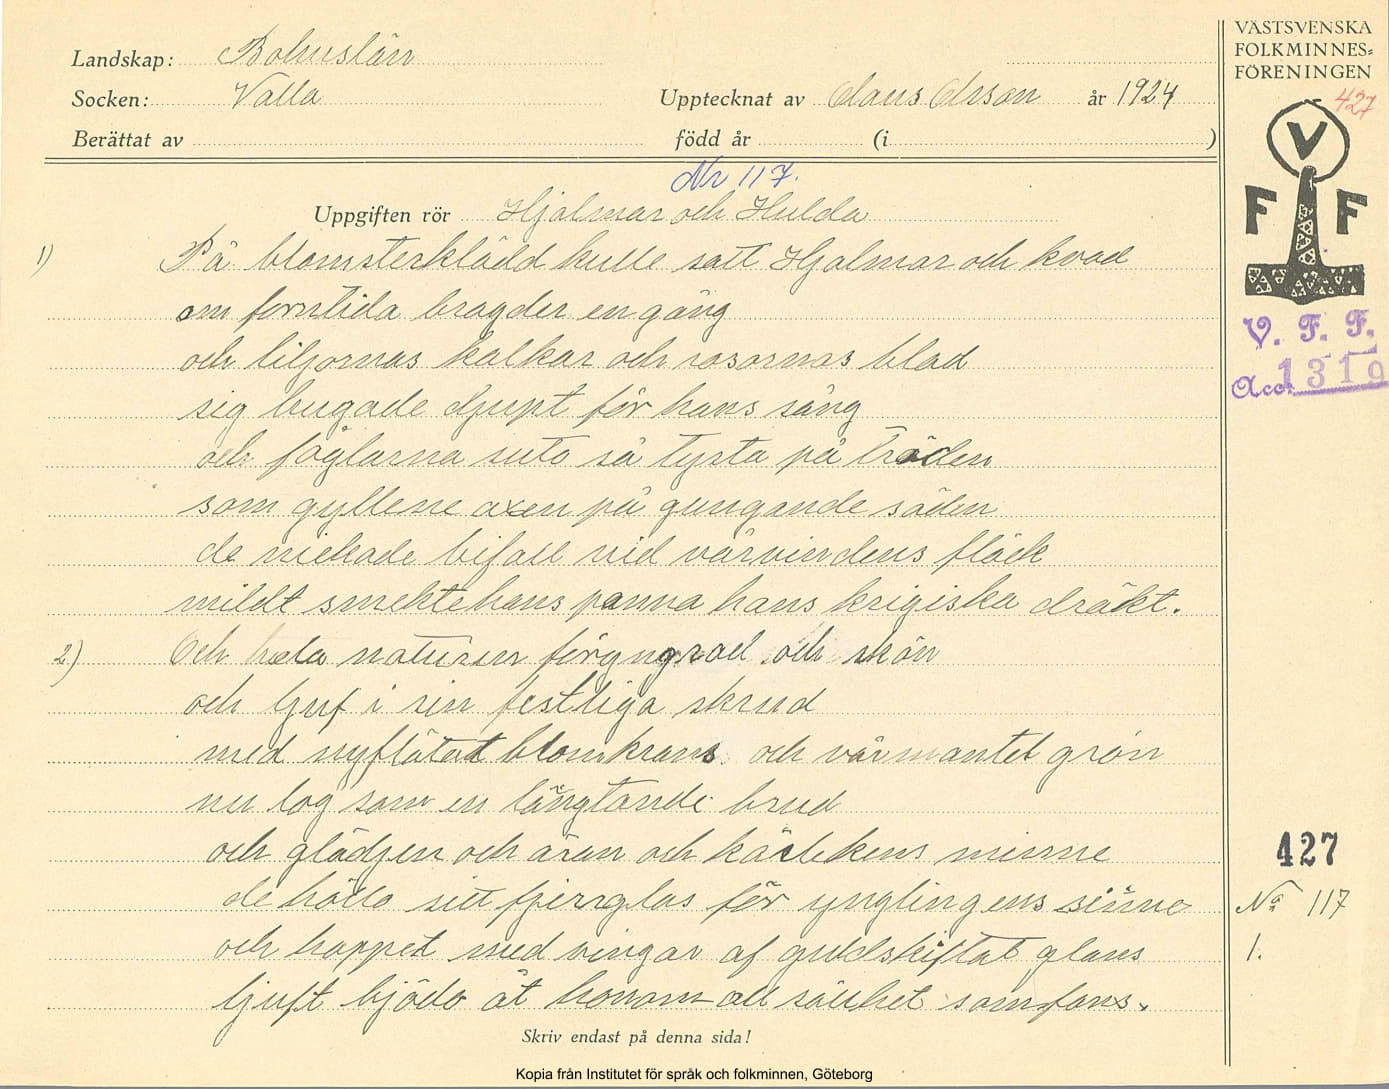 VÄSTSVENSKA
FOLKMINNES=
FÖRENINGEN
427
V F F
V. F. F.
Acc. 1319
Landskap: Bohuslän
Socken: Valla Upptecknat av Olaus Olsson år 1924
Berättat av född år (i )
Nr 117.
Uppgiften rör Hjalmar och Hulda
1) På blomsterklädd kulle satt Hjalmar och kvad
om forntida bragder en gång
och liljornas kalkar och rosornas blad
sig bugade djupt för hans sång
och foglarna suto så tysta på träden
som gyllene axen på gungande säden
de nickade bifall vid vårvindens fläck
mildt smekte hans panna hans krigiska dräkt.
2) Och hela naturen föryngrad och skön
och ljuf i sin festliga skrud
med nyflätat blomkrans och vårmantel grön
nu log som en längtande brud
och glädjen och äran och kärlekens minne
de höllo sitt fjerrglas för ynglingens sinne
och hoppet med vingar af guldskiftat glans
ljuft bjödo åt honom all sällhet som fans.
427
No 117
1.
Skriv endast på denna sida!
Kopia från Institutet för språk och folkminnen, Göteborg